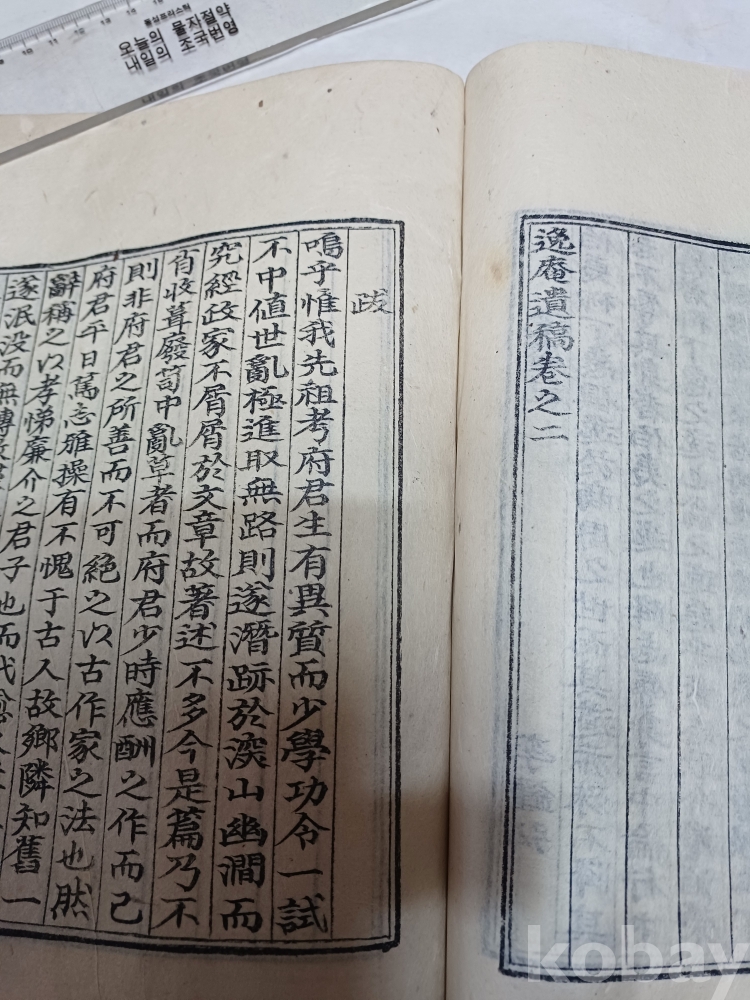 통성프라스틱
오늘의 물자절약
내일의 조국번영
逸庵遺稿卷之二
跋
嗚乎惟我先祖考府君生有異質而少學功令一試
不中値世亂極進取無路則遂潛跡於深山幽澗而
究經政家不屑屑於文章故著述不多今是篇乃不
肖收葺廢笥中亂草者而府君少時應酬之作而已
則非府君之所善而不可絶之以古作家之法也然
府君平日篤志雅操有不愧于古人故鄕隣知舊一
辭稱之以孝悌廉介之君子也而代
遂泯没而無傳
kobay